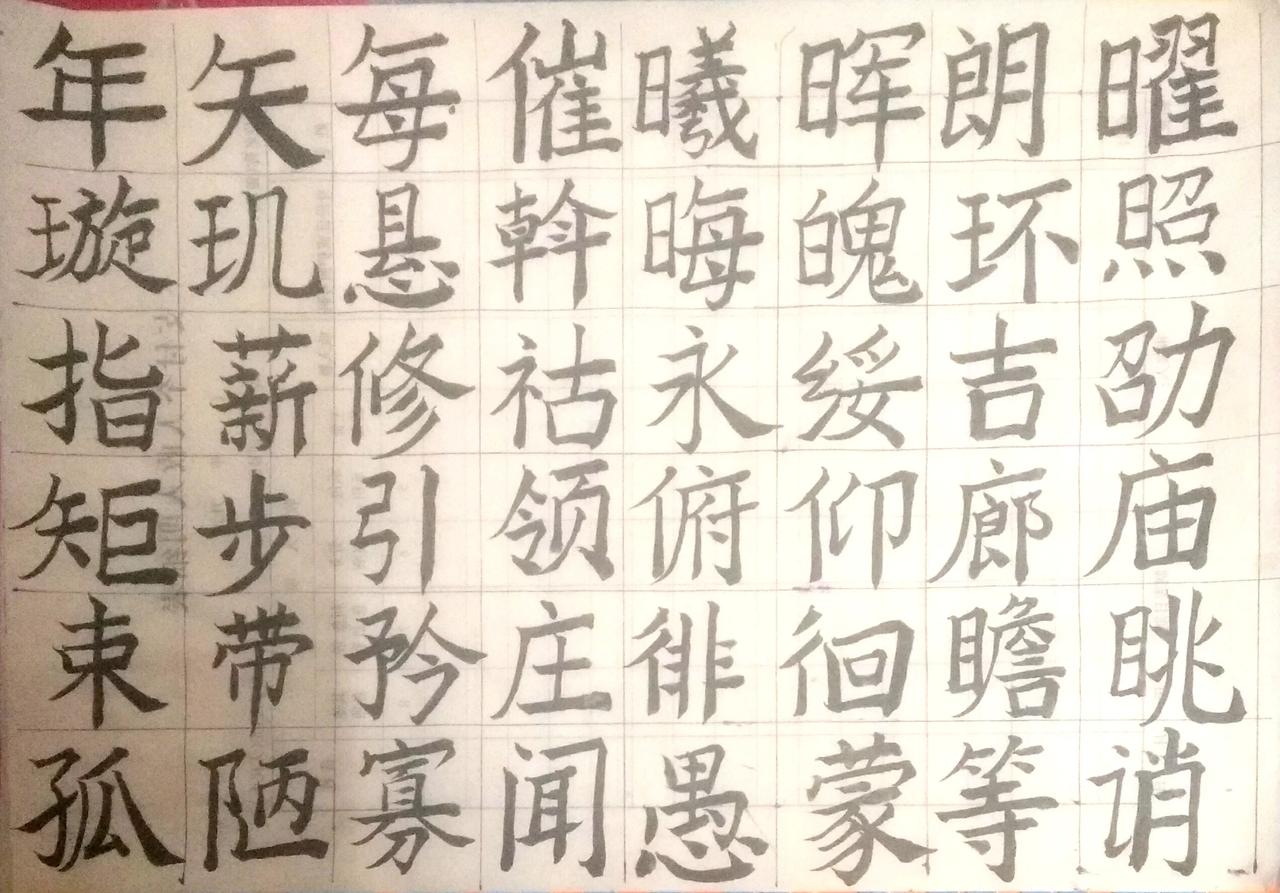 年矢每催曦晖朗曜
璇玑悬斡晦魄环照
指薪修祜永绥吉劭
矩步引领俯仰廊庙
束带矜庄徘徊瞻眺
孤陋寡闻愚蒙等诮